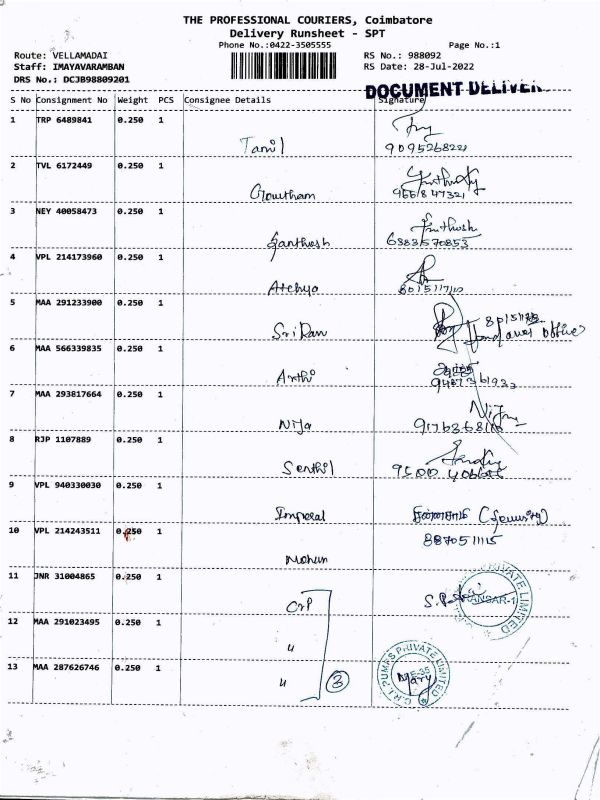 THE PROFESSIONAL COURIERS, Coimbatore
Delivery Runsheet - SPT
Phone No.:0422-3505555
Page No.:1
Route: VELLAMADAI
RS No.: 988092
Staff: IMAYAVARAMBAN
RS Date: 28-Jul-2022
DRS No.: DCJB98809201
DOCUMENT DELIVER
S No Consignment No Weight PCS Consignee Details Signature
1 TRP 6489841 0.250 1
Tamil 9095268221
2 TVL 6172449 0.250 1
Gowtham 9661847321
3 NEY 40058473 0.250 1
Santhosh 6383570853
4 VPL 214173960 0.250 1
Atchya
5 MAA 291233900 0.250 1
Sri Ram
6 MAA 566339835 0.250 1
Arthi
7 MAA 293817664 0.250 1
Nija
8 RJP 1107889 0.250 1
Senthil
9 VPL 940330030 0.250 1
Imperal
10 VPL 214243511 0.250 1
8870511115
Mohan
11 JNR 31004865 0.250 1
CRP
12 MAA 291023495 0.250 1
"
13 MAA 287626746 0.250 1
" 3
C.R.I. PUMPS PRIVATE LIMITED
Mary